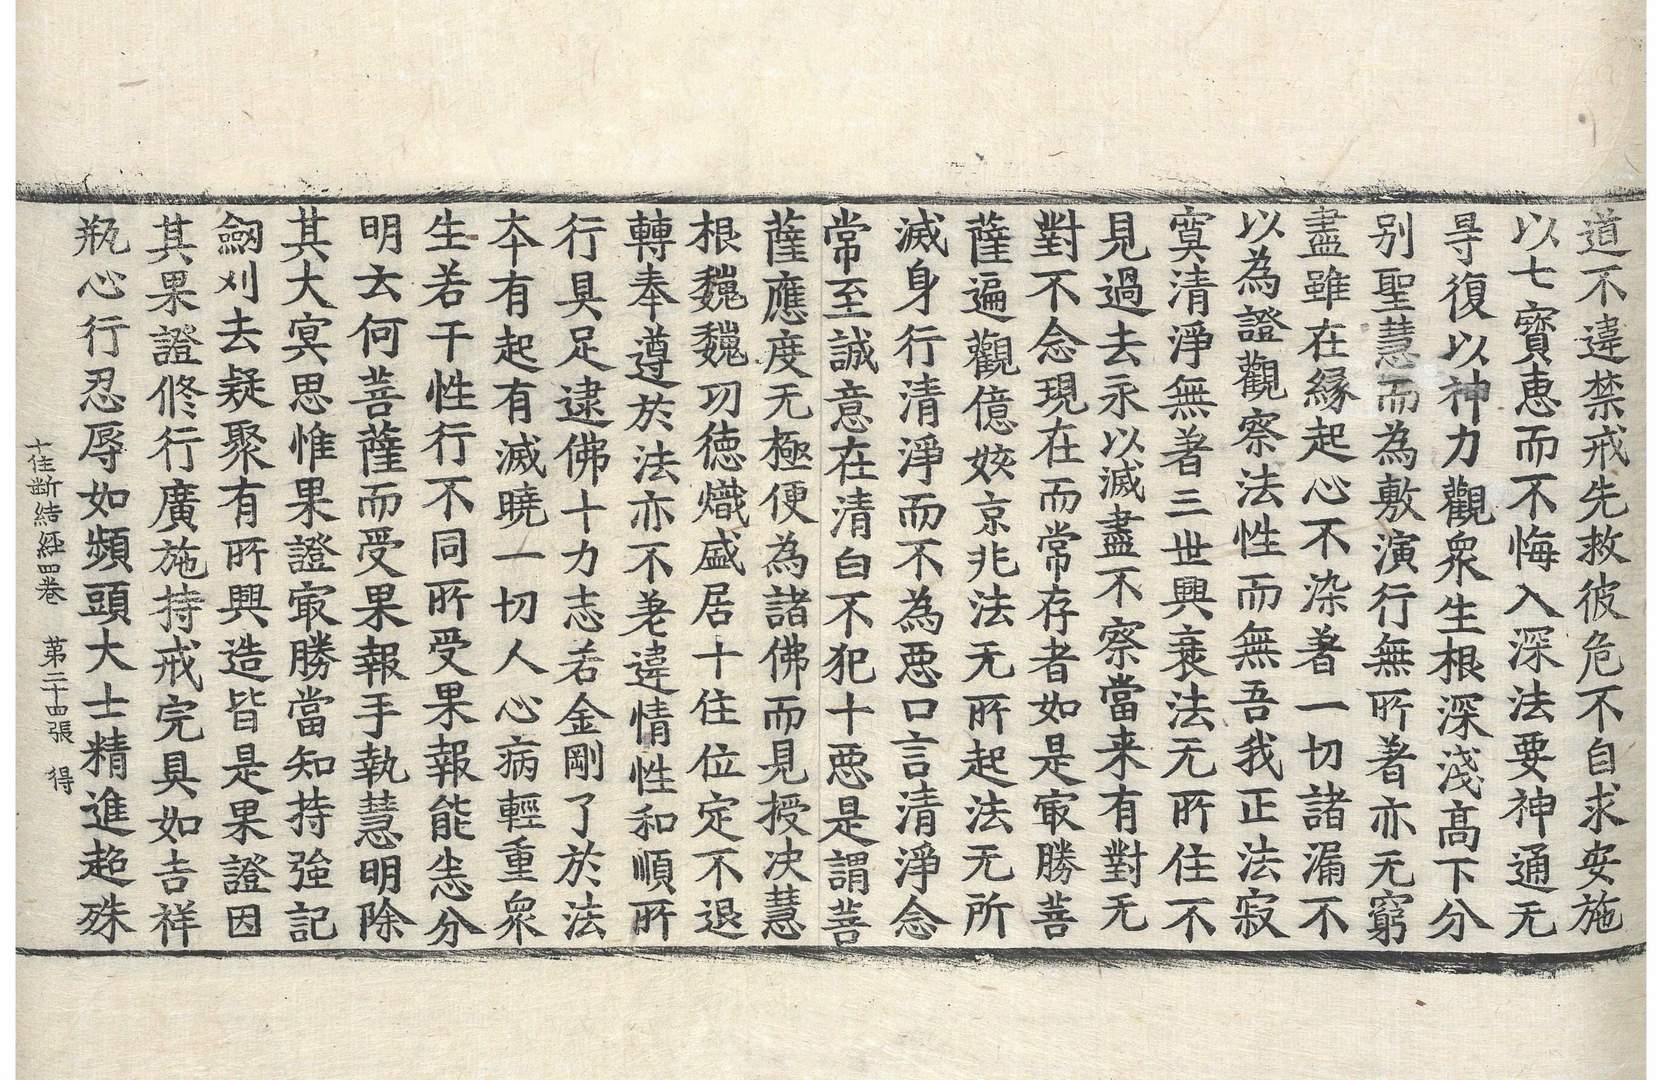 道不違禁戒先救彼危不自求安施
以七寶恵而不悔入深法要神通无
㝵復以神力觀衆生根深淺髙下分
别聖慧而為敷演行無所著亦无窮
盡雖在縁起心不染著一切諸漏不
以為證觀察法性而無吾我正法寂
寞清淨無著三世興衰法无所住不
見過去永以滅盡不察當来有對无
對不念現在而常存者如是㝡勝菩
薩遍觀億姟京兆法无所起法无所
滅身行清淨而不為惡口言清淨念
常至誠意在清白不犯十惡是謂菩
薩應度无極便為諸佛而見授决慧
根巍巍功徳熾盛居十住位定不退
轉奉遵於法亦不差違情性和順所
行具足逮佛十力志若金剛了於法
夲有起有滅曉一切人心病輕重衆
生若干性行不同所受果報能悉分
明云何菩薩而受果報手執慧明除
其大冥思惟果證㝡勝當知持強記
劒刈去疑聚有所興造皆是果證因
其果證修行廣施持戒完具如吉祥
瓶心行忍辱如頞頭大士精進超殊
十住断結經四巻　第二十四張　得